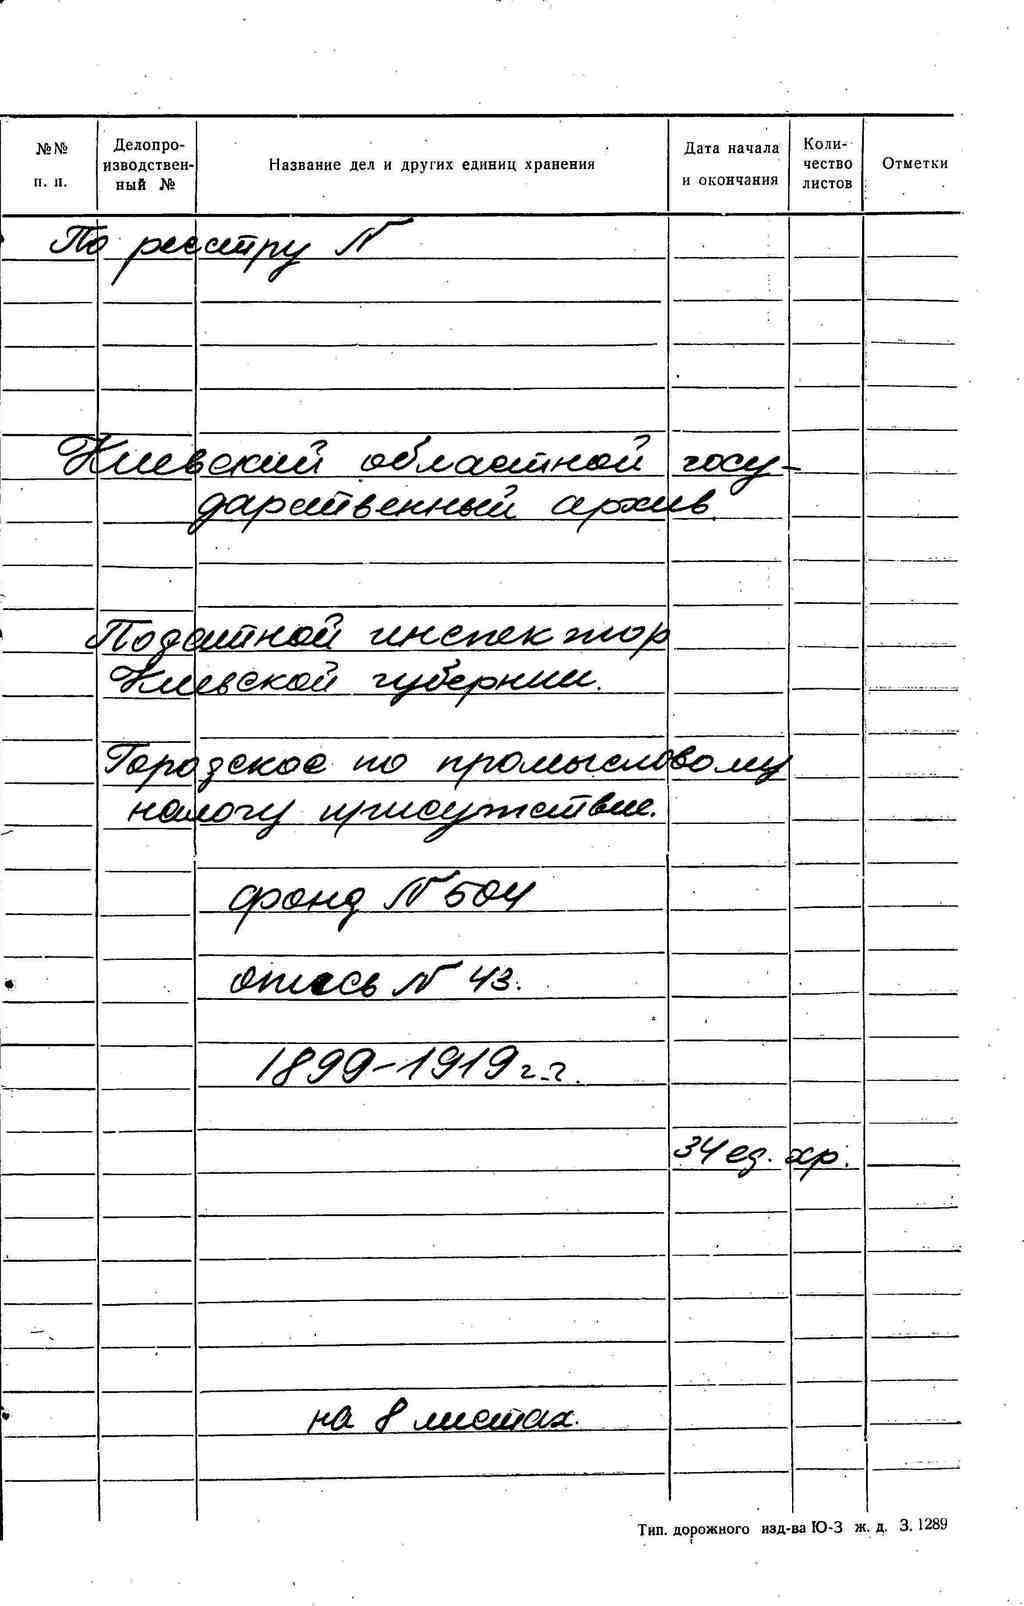 №№ п. п.
Делопро-
изводствен-
ный №
Название дел и других единиц хранения
Дата начала
и окончания
Коли-
чество
листов
Отметки
По реестру N
Киевский областной госу-
дарственный архив.
Податной инспектор
Киевской губернии.
Городское по промысловому
налогу присутствие.
фонд N 504
опись N 43.
1899-1919 г.г.
34 ед. хр.
на 8 листах.
Тип. дорожного изд-ва Ю-З ж. д. З. 1289